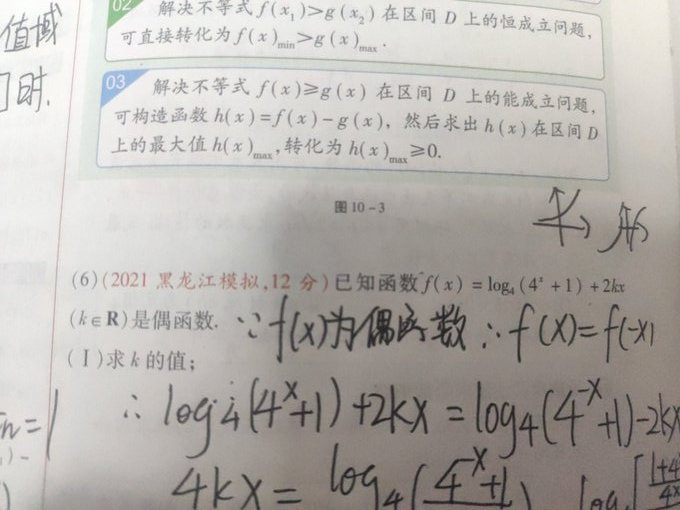 值域
时.
02 解决不等式 f(x₁)>g(x₂) 在区间 D 上的恒成立问题,
可直接转化为 f(x)min>g(x)max.
03 解决不等式 f(x)≥g(x) 在区间 D 上的能成立问题,
可构造函数 h(x)=f(x)-g(x), 然后求出 h(x) 在区间 D
上的最大值 h(x)max, 转化为 h(x)max≥0.
图 10-3
(6)(2021 黑龙江模拟,12 分)已知函数 f(x)=log₄(4ˣ+1)+2kx
(k∈R)是偶函数. ∵f(x)为偶函数 ∴f(x)=f(-x)
(Ⅰ)求 k 的值;
∴ log₄(4ˣ+1)+2kx=log₄(4⁻ˣ+1)-2kx
=1
4kx=log₄(4⁻ˣ+1